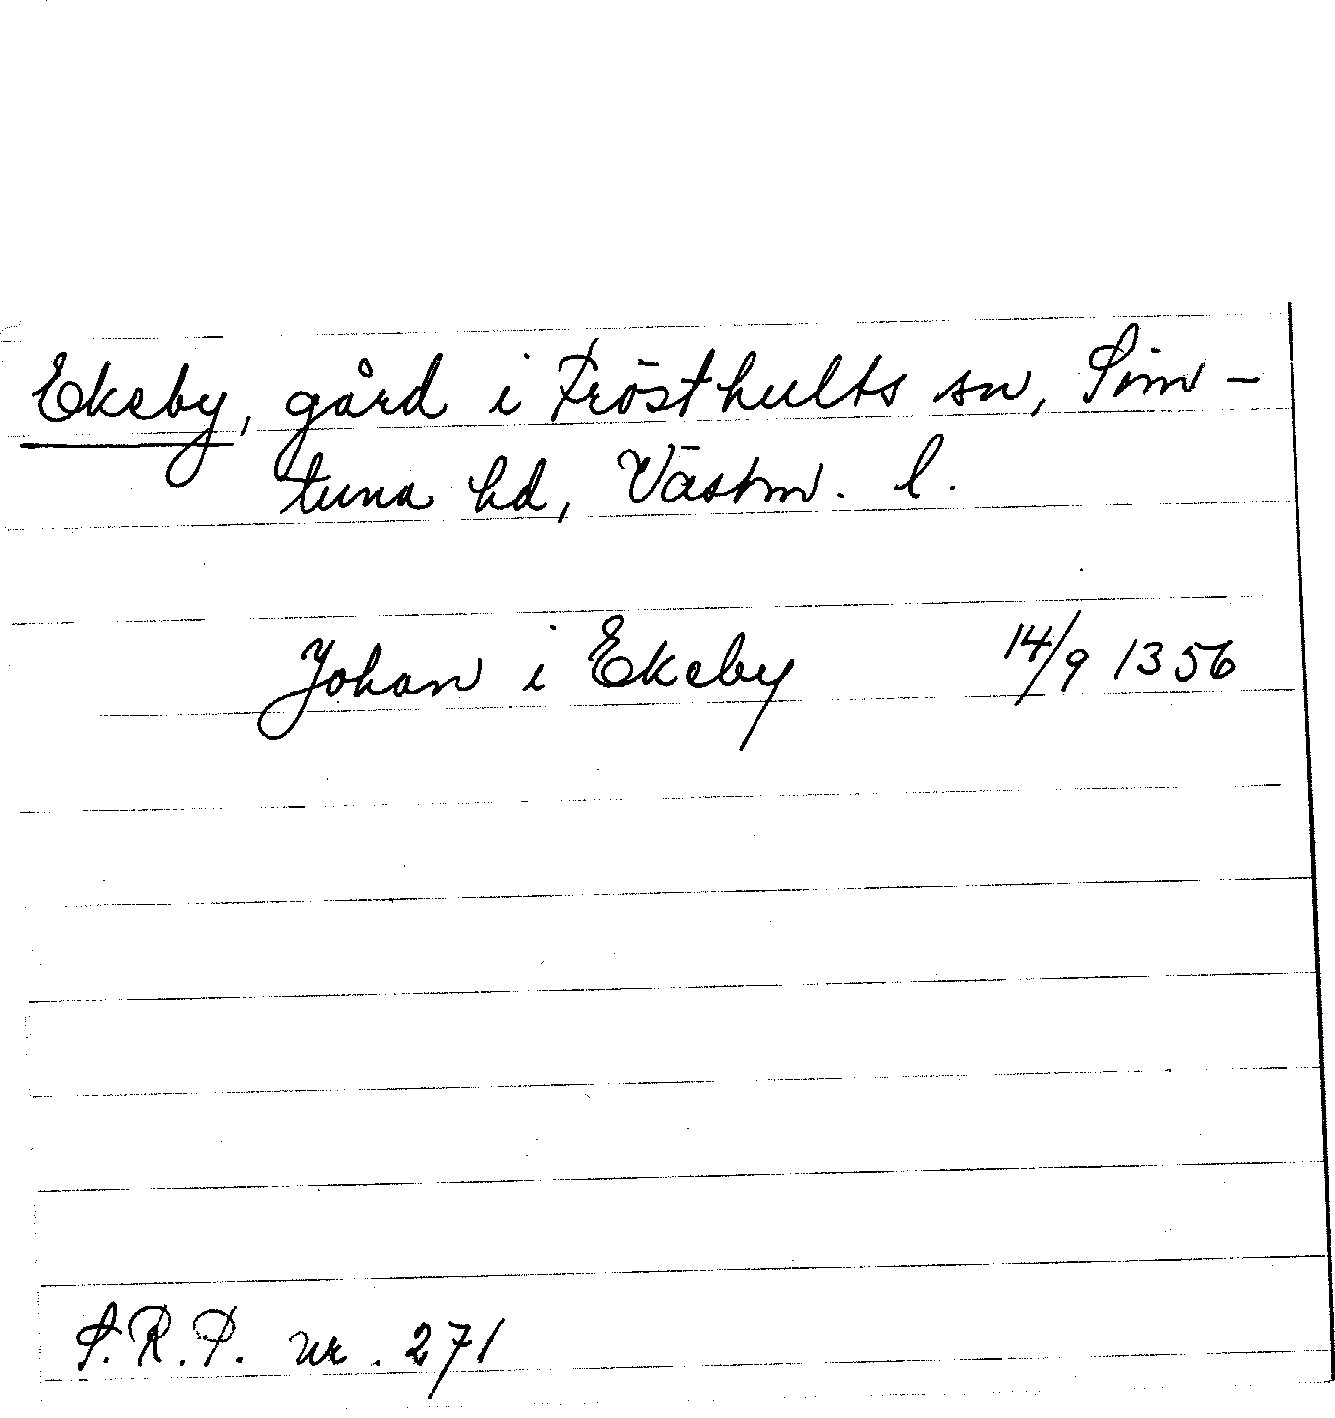 Ekeby, gård i Frösthults sn, Sim-
tuna hd, Västm. l.
Johan i Ekeby 14/9 1356
S.R.P. nr. 271